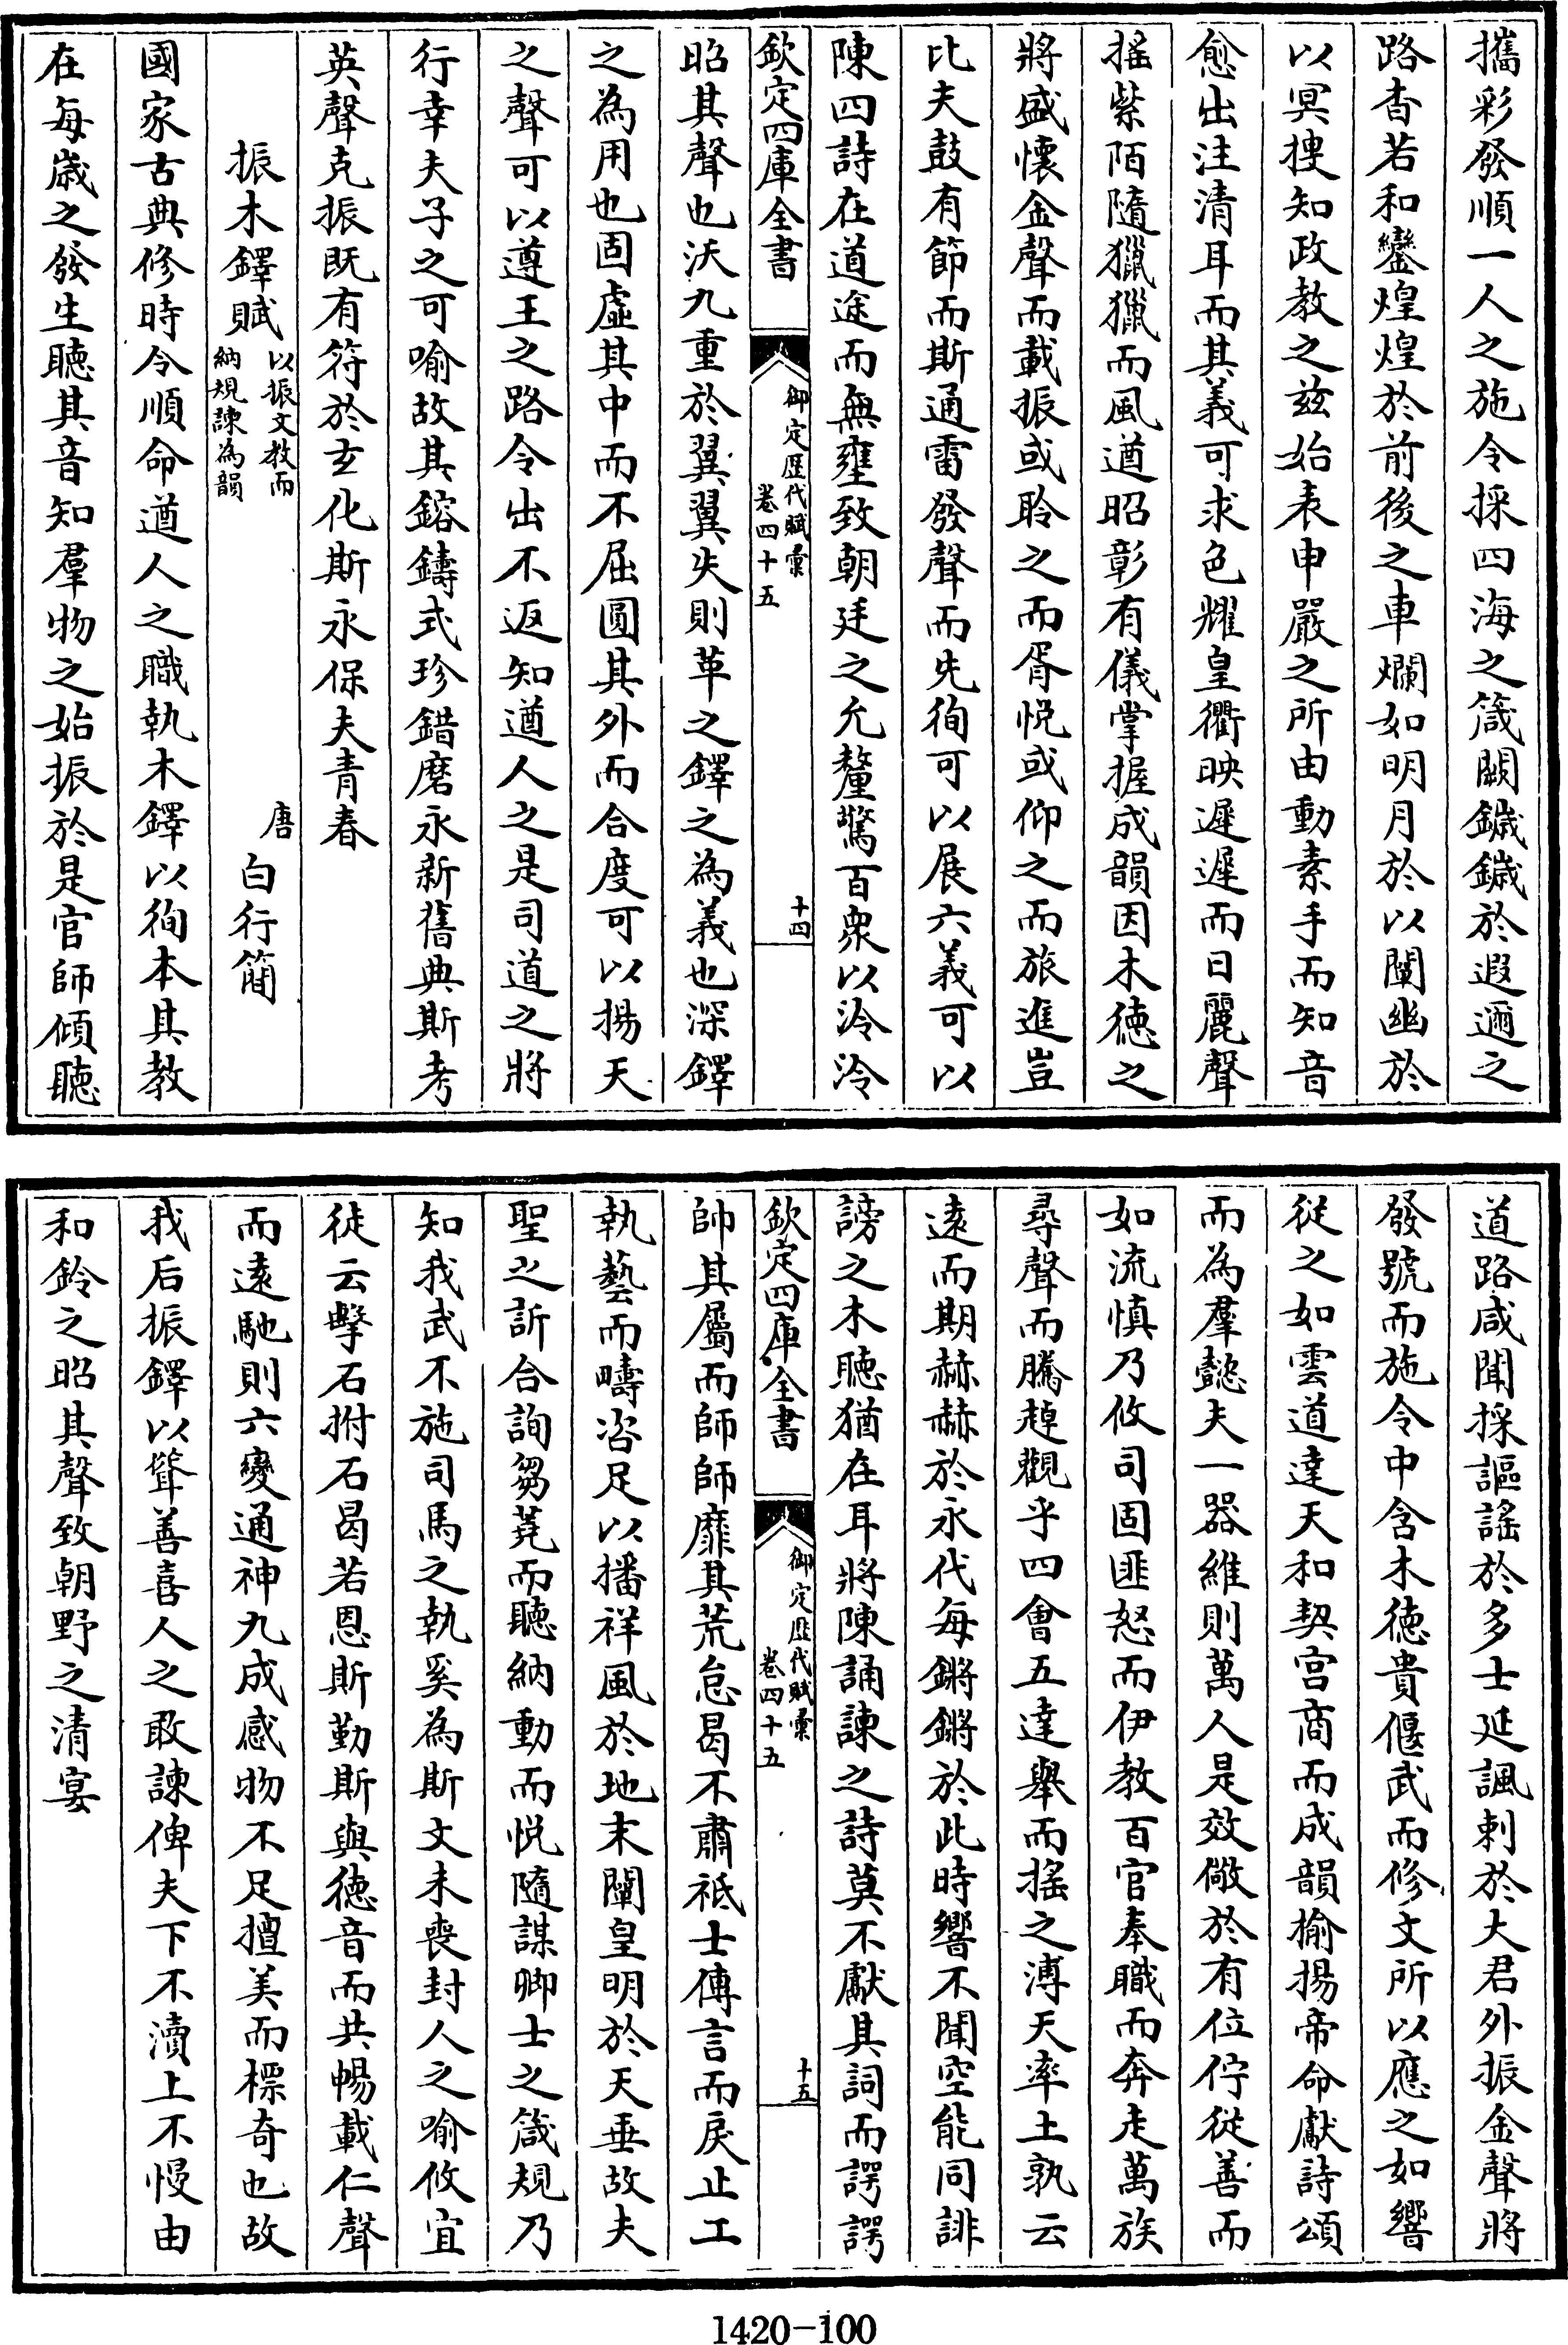 攜彩發順一人之施令採四海之箴闕鏚鏚於遐邇之
路杳若和鑾煌煌於前後之車爛如明月於以闡幽於
以冥搜知政教之兹始表申嚴之所由動素手而知音
愈出注清耳而其義可求色耀皇衢映遲遲而日麗聲
搖紫陌隨獵獵而風遒昭彰有儀掌握成韻因木德之
將盛懷金聲而載振或聆之而胥悦或仰之而旅進豈
比夫鼓有節而斯通雷發聲而先徇可以展六義可以
陳四詩在道途而無壅致朝廷之允釐驚百衆以泠泠
欽定四庫全書
御定歷代賦彙
卷四十五
十四
昭其聲也沃九重於翼翼失則革之鐸之為義也深鐸
之為用也固虛其中而不屈圓其外而合度可以揚天
之聲可以遵王之路令出不返知遒人之是司道之將
行幸夫子之可喻故其鎔鑄式珍錯磨永新舊典斯考
英聲克振既有符於玄化斯永保夫青春
振木鐸賦
以振文教而
納規諫為韻
唐
白行簡
國家古典修時令順命遒人之職執木鐸以徇本其教
在每歲之發生聽其音知羣物之始振於是官師傾聽
道路咸聞採謳謠於多士延諷刺於大君外振金聲將
發號而施令中含木德貴偃武而修文所以應之如響
從之如雲道達天和契宫商而成韻揄揚帝命獻詩頌
而為羣懿夫一器維則萬人是效儆於有位佇從善而
如流慎乃攸司固匪怒而伊教百官奉職而奔走萬族
尋聲而騰趠觀乎四會五達舉而搖之溥天率土孰云
遠而期赫赫於永代每鏘鏘於此時響不聞空能同誹
謗之木聽猶在耳將陳誦諫之詩莫不獻其詞而諤諤
欽定四庫全書
御定歷代賦彙
卷四十五
十五
帥其屬而師師靡其荒怠曷不肅祗士傳言而戾止工
執藝而疇咨足以播祥風於地末闡皇明於天垂故夫
聖之訢合詢芻蕘而聽納動而悦隨謀卿士之箴規乃
知我武不施司馬之執奚為斯文未喪封人之喻攸宜
徒云擊石拊石曷若恩斯勤斯與德音而共暢載仁聲
而遠馳則六變通神九成感物不足擅美而標奇也故
我后振鐸以聳善喜人之敢諫俾夫下不瀆上不慢由
和鈴之昭其聲致朝野之清宴
1420-100